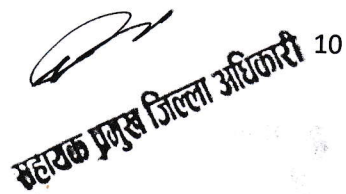 सहायक प्रमुख जिल्ला अधिकारी
10